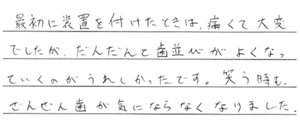 最初に装置を付けたときは、痛くて大変
でしたが、だんだんと歯並びがよくなっ
ていくのがうれしかったです。笑う時も、
ぜんぜん歯が気にならなくなりました。